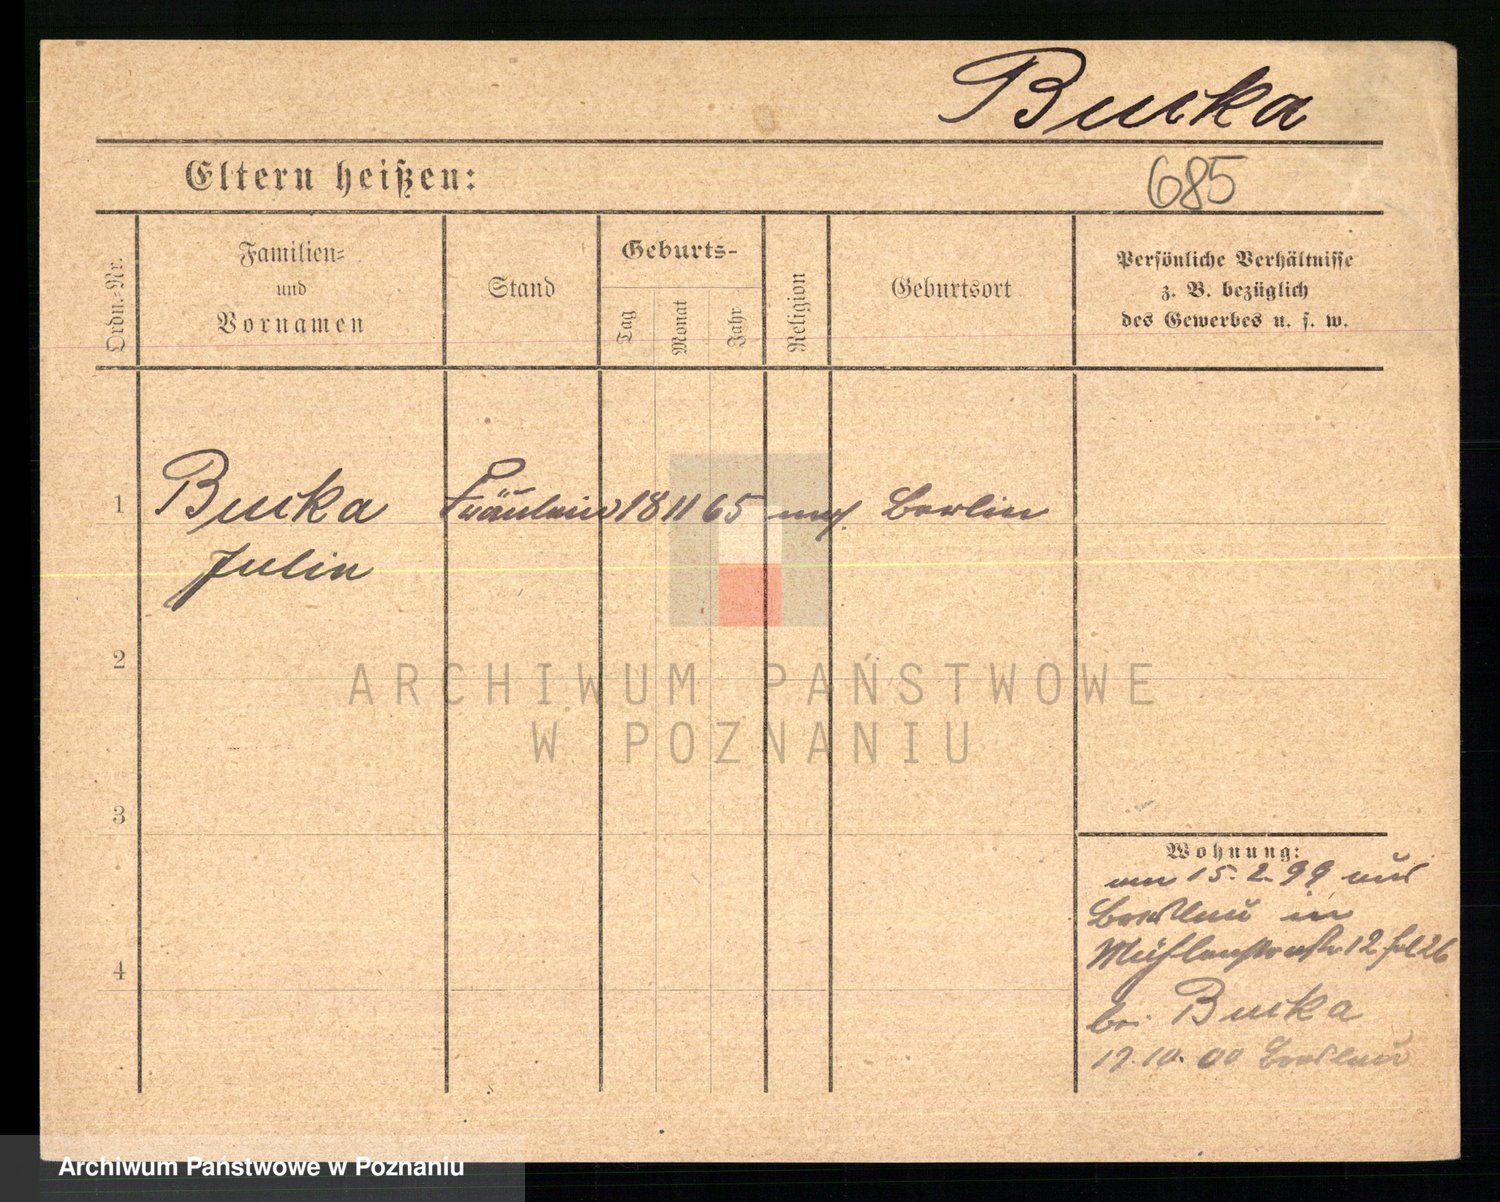 Bucka
Eltern heißen:
685
Ordn.-Nr.
Familien-
und
Vornamen
Stand
Geburts-
Tag
Monat
Jahr
Religion
Geburtsort
Persönliche Verhältnisse
z. B. bezüglich
des Gewerbes u. s. w.
1
Bucka Fräulein 18 11 65 Berlin
2
ARCHIWUM PAŃSTWOWE
W POZNANIU
3
4
Wohnung:
am 15. 2. 99 aus
Breslau in
Mühlenstraße 12
bei Bucka
17. 10. 00 Breslau
Archiwum Państwowe w Poznaniu